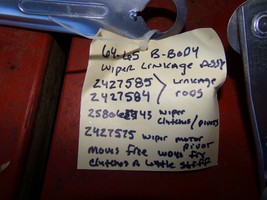 64-65 B-BODY
WIPER LINKAGE ASSY
2427585 > LINKAGE
2427584 RODS
WIPER
CLUTCHES/PIVOTS
2427575 WIPER MOTOR
PIVOT
MOVES FREE WORKS FINE
CLUTCHES A LITTLE STIFF